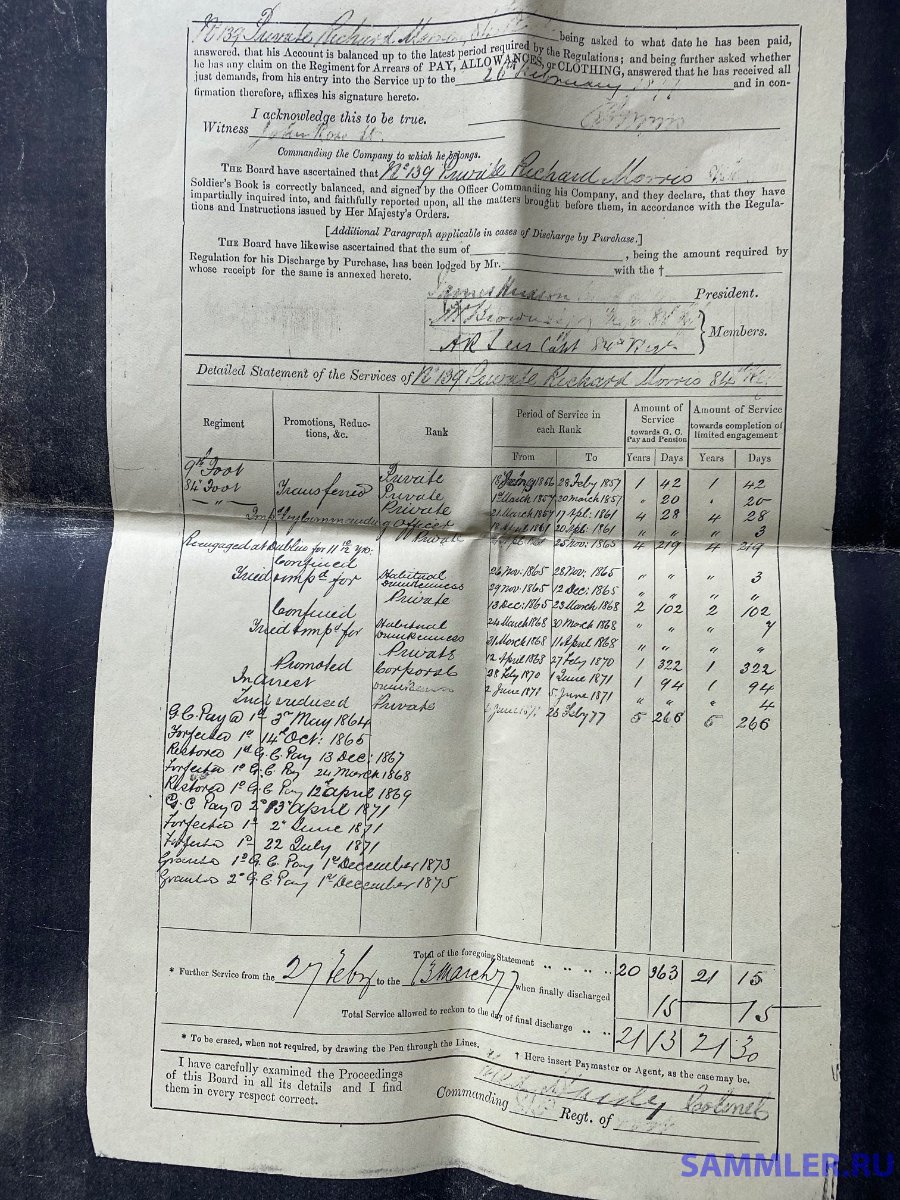 No 139 Private Richard Morris 84th being asked to what date he has been paid,
answered, that his Account is balanced up to the latest period required by the Regulations; and being further asked whether
he has any claim on the Regiment for Arrears of PAY, ALLOWANCES, or CLOTHING, answered that he has received all
just demands, from his entry into the Service up to the 26th February and in con-
firmation therefore, affixes his signature hereto.
I acknowledge this to be true.
Witness John Ross
Commanding the Company to which he belongs.
THE Board have ascertained that No 139 Private Richard Morris
Soldier's Book is correctly balanced, and signed by the Officer Commanding his Company, and they declare, that they have
impartially inquired into, and faithfully reported upon, all the matters brought before them, in accordance with the Regula-
tions and Instructions issued by Her Majesty's Orders.
[Additional Paragraph applicable in cases of Discharge by Purchase.]
THE Board have likewise ascertained that the sum of , being the amount required by
Regulation for his Discharge by Purchase, has been lodged by Mr. with the †
whose receipt for the same is annexed hereto.
James Hudson President.
Members.
Capt 84th Regt
Detailed Statement of the Services of No 139 Private Richard Morris 84th
Regiment Promotions, Reduc-tions, &c. Rank Period of Service in each Rank Amount of Service towards G. C. Pay and Pension Amount of Service towards completion of limited engagement
From To Years Days Years Days
9th Foot Private 1856 28 Feby 1857 1 42 1 42
84th Foot Transferred Private 1st March 1857 20 March 1857 " 20 " 20
" " Private 21 March 1857 17 Apl: 1861 4 28 4 28
Imp by Commanding Officer 18 April 1861 20 Apl: 1861 " " " 3
Reengaged at Dublin for 11 10/12 yrs: Private 25 Nov: 1865 4 219 4 219
Confined 26 Nov: 1865 28 Nov: 1865 " " " 3
Tried & impd for Habitual Drunkenness 29 Nov: 1865 12 Dec: 1865 " " " "
Private 13 Dec: 1865 23 March 1868 2 102 2 102
Confined 24 March 1868 30 March 1868 " " " 7
Tried & impd for Habitual Drunkenness 31 March 1868 11 April 1868 " " " "
Private 12 April 1868 27 Feby 1870 1 322 1 322
Promoted Corporal 28 Feby 1870 1 June 1871 1 94 1 94
In arrest 2 June 1871 5 June 1871 " " " 4
Tried & reduced Private June 26 Feby 77 5 266 5 266
G. C. Pay @ 1d 3rd May 1864
Forfeited 1d 14th Oct: 1865
Restored 1d G. C. Pay 13 Dec: 1867
Forfeited 1d G. C. Pay 24 March 1868
Restored 1d G. C. Pay 12th April 1869
G. C. Pay @ 2d 13th April 1871
Forfeited 1d 2d June 1871
Forfeited 1d 22 July 1871
Granted 1d G. C. Pay 1st December 1873
Granted 2d G. C. Pay 1st December 1875
Total of the foregoing Statement " " " " 20 363 21 15
* Further Service from the 27 Feby to the 13 March 77 when finally discharged 15 15
Total Service allowed to reckon to the day of final discharge " " 21 13 21 30
* To be erased, when not required, by drawing the Pen through the Lines. † Here insert Paymaster or Agent, as the case may be.
I have carefully examined the Proceedings
of this Board in all its details and I find
them in every respect correct.
Colonel
Commanding Regt. of
SAMMLER.RU